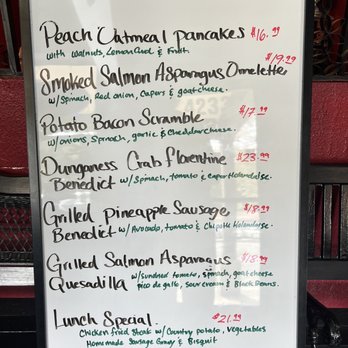 Peach Oatmeal pancakes $16.99
with walnuts, Lemon Curd & Fruit.
$19.99
Smoked Salmon Asparagus Omelette
w/Spinach, Red onion, Capers & goat cheese.
Potato Bacon Scramble $17.99
w/onions, Spinach, garlic & Cheddar cheese.
Dungeness Crab florentine $23.99
Benedict w/Spinach, tomato & caper Holandaise.
Grilled pineapple Sausage $18.99
Benedict w/Avocado, tomato & Chipotle Holandaise.
Grilled Salmon Asparagus $18.99
Quesadilla w/sundried tomato, spinach, goat cheese
pico de gallo, sour cream & Black Beans.
Lunch Special $21.99
Chicken fried Steak w/Country potato, vegetables
Homemade Sausage Gravy & Bisquit